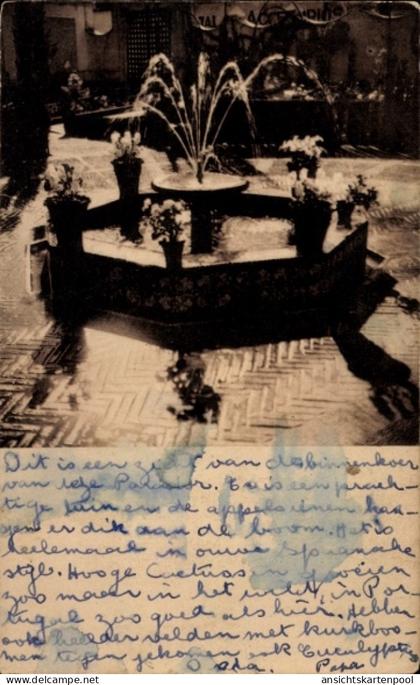 Dit is een zicht van de binnenkoer
van
Er is een prach-
tige tuin en de appelsienen han-
gen er dik aan de boom. Het is
heelemaal in ouwe Spaansche
styl. Hooge Cactussen groeien
zoo maar in het wild, in Por-
tugal zoo goed als hier. Hebben
ook heelder velden met kurkboo-
men tegen gekomen ook Eucalypt
Papa
ansichtskartenpool